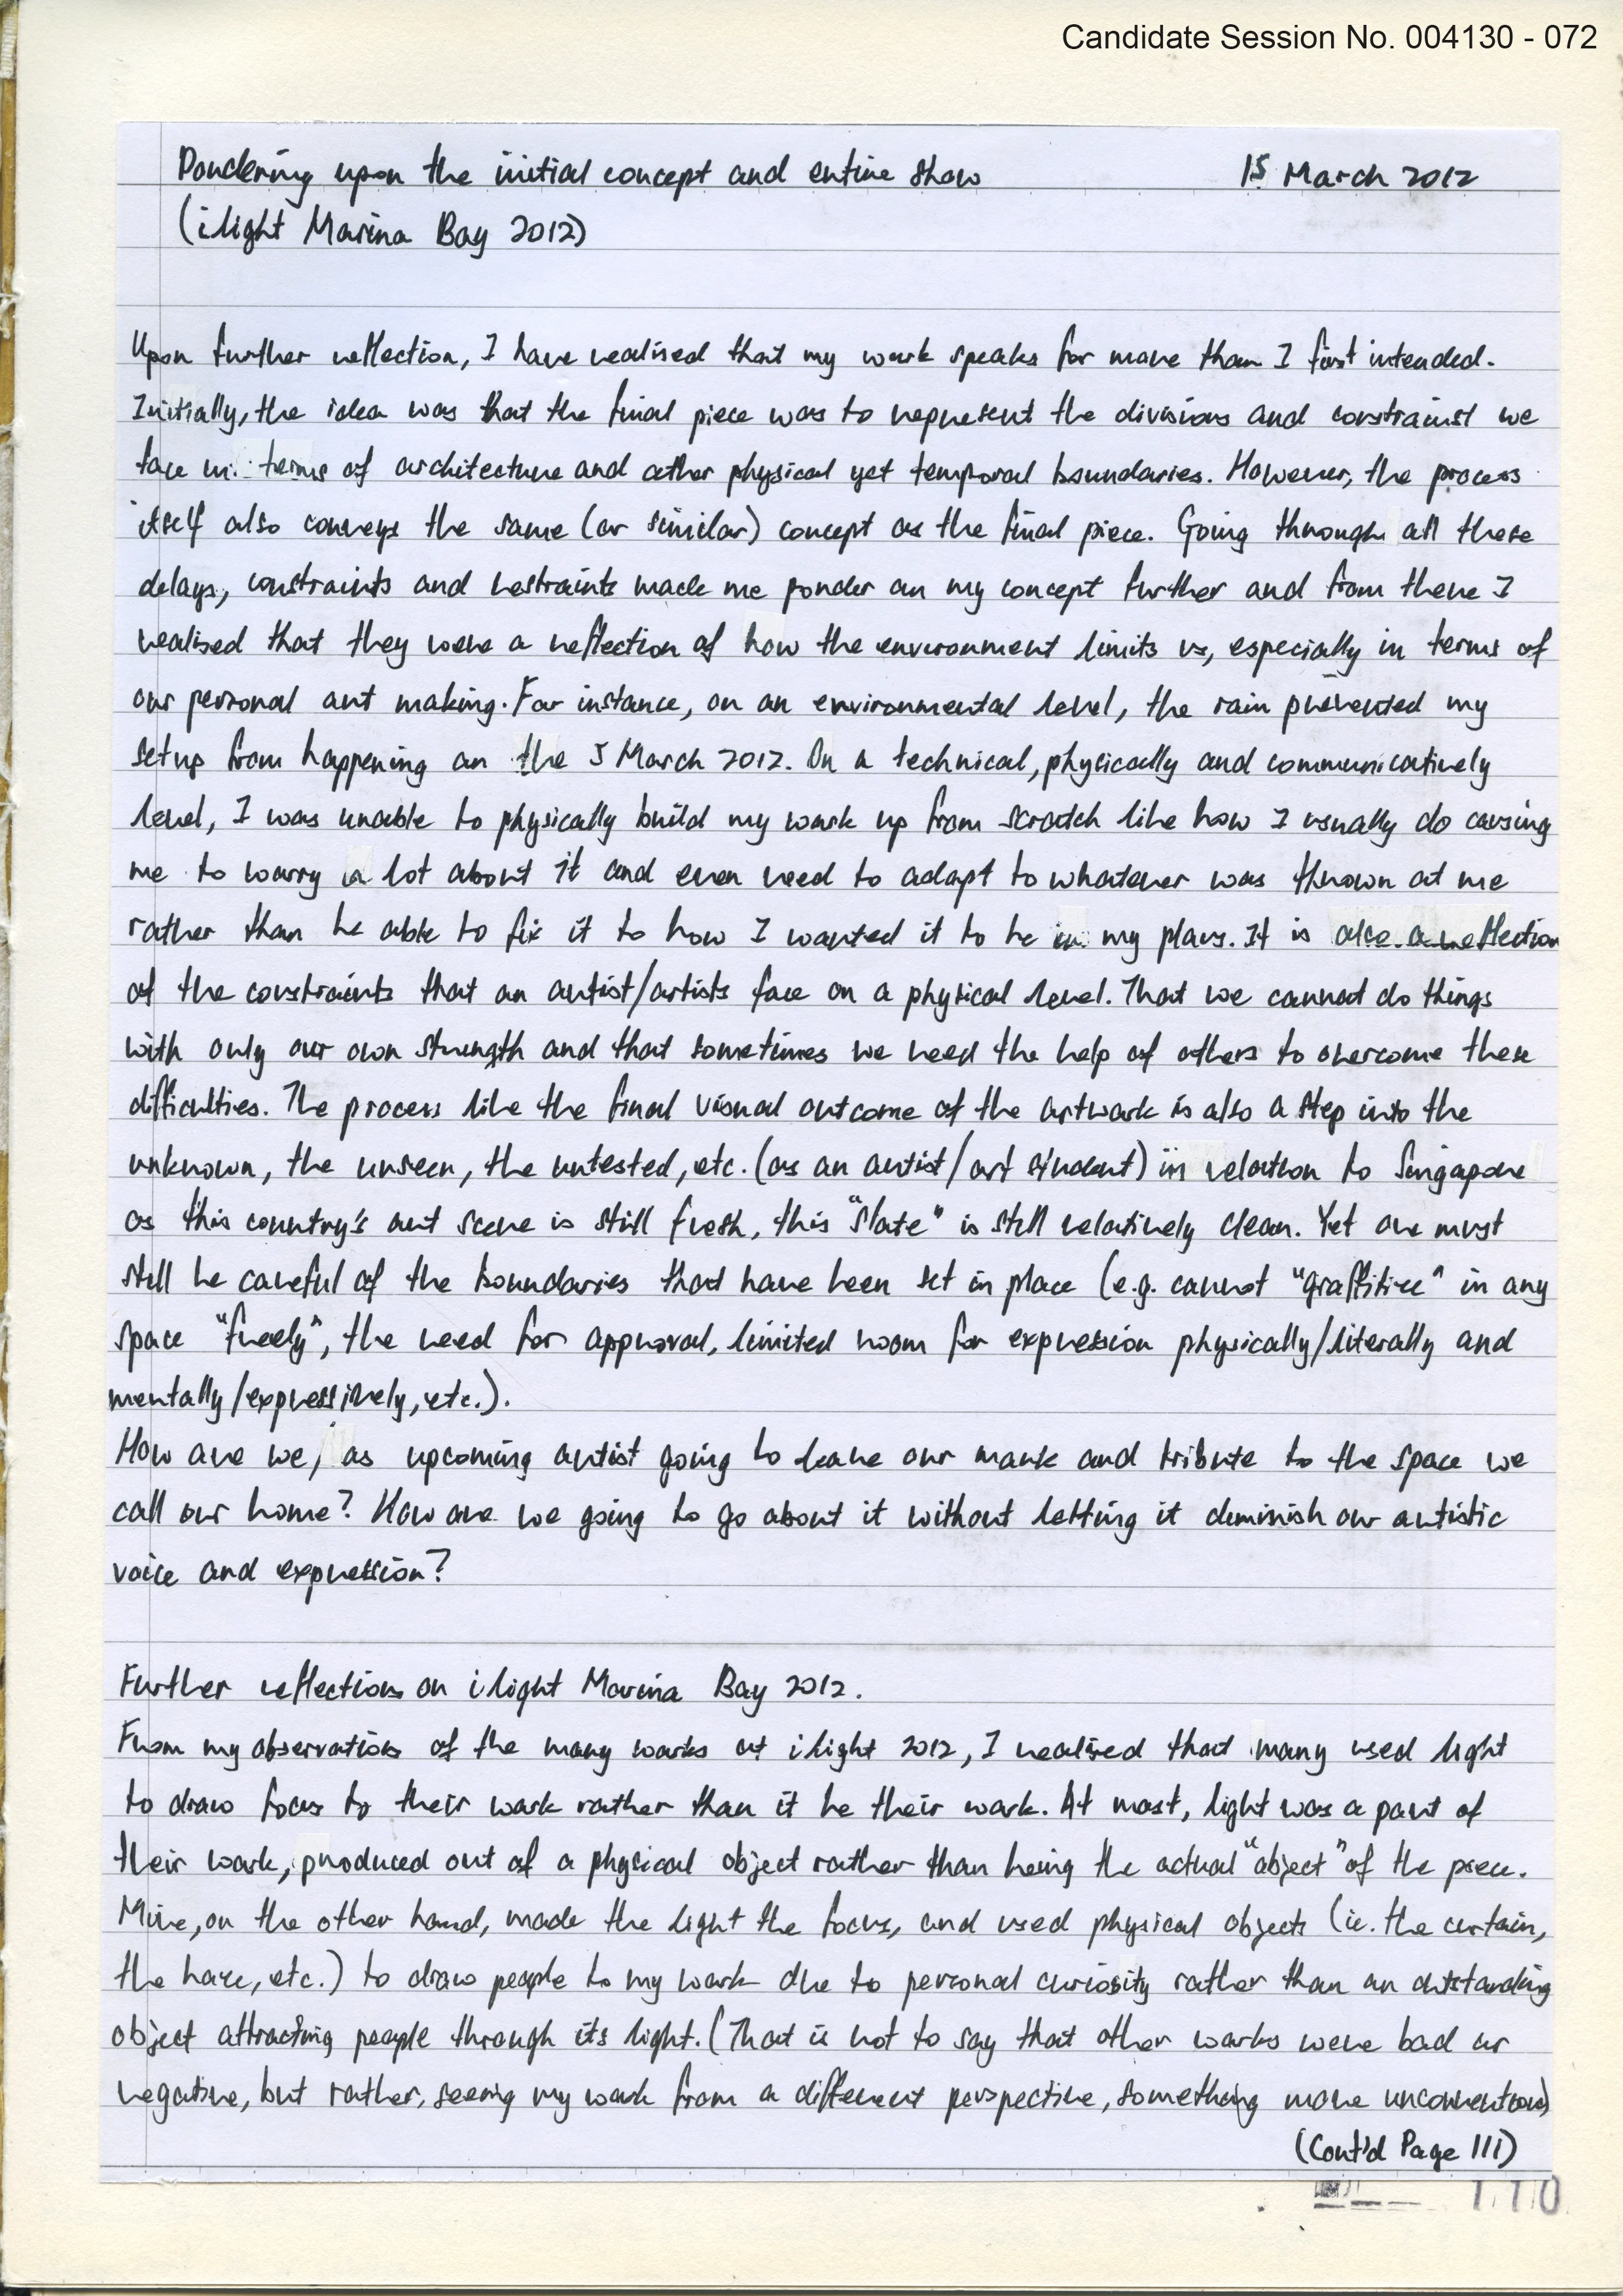 Candidate Session No. 004130 - 072
Pondering upon the initial concept and entire show 15 March 2012
(i light Marina Bay 2012)
Upon further reflection, I have realised that my work speaks far more than I first intended.
Initially, the idea was that the final piece was to represent the divisions and constrainst we
face in terms of architecture and other physical yet temporal boundaries. However, the process
itself also conveys the same (or similar) concept as the final piece. Going through all these
delays, constraints and restraints made me ponder on my concept further and from there I
realised that they were a reflection of how the environment limits us, especially in terms of
our personal art making. For instance, on an environmental level, the rain prevented my
setup from happening on the 5 March 2012. On a technical, physically and communicatively
level, I was unable to physically build my work up from scratch like how I usually do causing
me to worry a lot about it and even need to adapt to whatever was thrown at me
rather than be able to fix it to how I wanted it to be in my plans. It is also a reflection
of the constraints that an artist/artists face on a physical level. That we cannot do things
with only our own strength and that sometimes we need the help of others to overcome these
difficulties. The process like the final visual outcome of the artwork is also a step into the
unknown, the unseen, the untested, etc. (as an artist/art student) in relation to Singapore
as this country's art scene is still fresh, this "slate" is still relatively clean. Yet one must
still be careful of the boundaries that have been set in place (e.g. cannot "graffitize" in any
space "freely", the need for approval, limited room for expression physically/literally and
mentally/expressively, etc.).
How are we, as upcoming artist going to leave our mark and tribute to the space we
call our home? How are we going to go about it without letting it diminish our artistic
voice and expression?
Further reflections on i light Marina Bay 2012.
From my observations of the many works at i light 2012, I realised that many used light
to draw focus to their work rather than it be their work. At most, light was a part of
their work, produced out of a physical object rather than being the actual "object" of the piece.
Mine, on the other hand, made the light the focus, and used physical objects (ie. the curtain,
the haze, etc.) to draw people to my work due to personal curiosity rather than an outstanding
object attracting people through its light. (That is not to say that other works were bad or
negative, but rather, seeing my work from a different perspective, something more unconventional)
(Cont'd Page 111)
110